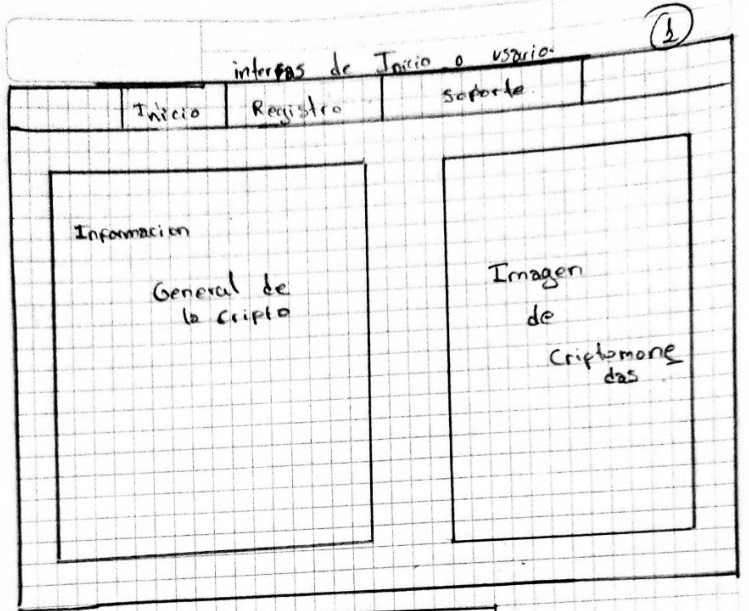 1
interfas de Inicio o usario.
Inicio Registro soporte.
Informacion
General de
la Cripto
Imagen
de
Criptomone
das